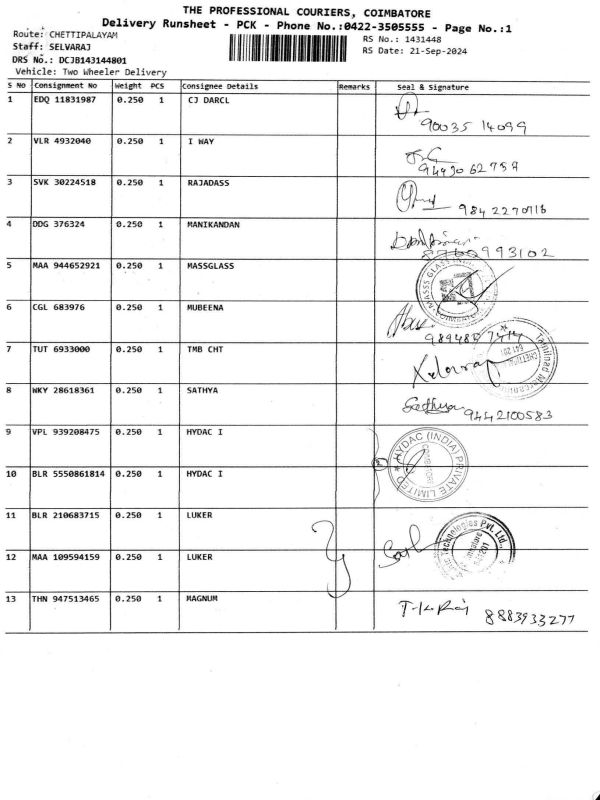 THE PROFESSIONAL COURIERS, COIMBATORE
Delivery Runsheet - PCK - Phone No.:0422-3505555 - Page No.:1
Route: CHETTIPALAYAM
Staff: SELVARAJ
DRS No.: DCJB143144801
Vehicle: Two Wheeler Delivery
RS No.: 1431448
RS Date: 21-Sep-2024
S No Consignment No Weight PCS Consignee Details Remarks Seal & Signature
1 EDQ 11831987 0.250 1 CJ DARCL
90035 14099
2 VLR 4932040 0.250 1 I WAY
3 SVK 30224518 0.250 1 RAJADASS
9842270716
4 DDG 376324 0.250 1 MANIKANDAN
8760993102
5 MAA 944652921 0.250 1 MASSGLASS
6 CGL 683976 0.250 1 MUBEENA
7 TUT 6933000 0.250 1 TMB CHT
8 WKY 28618361 0.250 1 SATHYA
Sathya 9442100583
9 VPL 939208475 0.250 1 HYDAC I
HYDAC (INDIA) PRIVATE LIMITED
10 BLR 5550861814 0.250 1 HYDAC I
11 BLR 210683715 0.250 1 LUKER
Technologies Pvt. Ltd.,
12 MAA 109594159 0.250 1 LUKER
13 THN 947513465 0.250 1 MAGNUM
8883933277